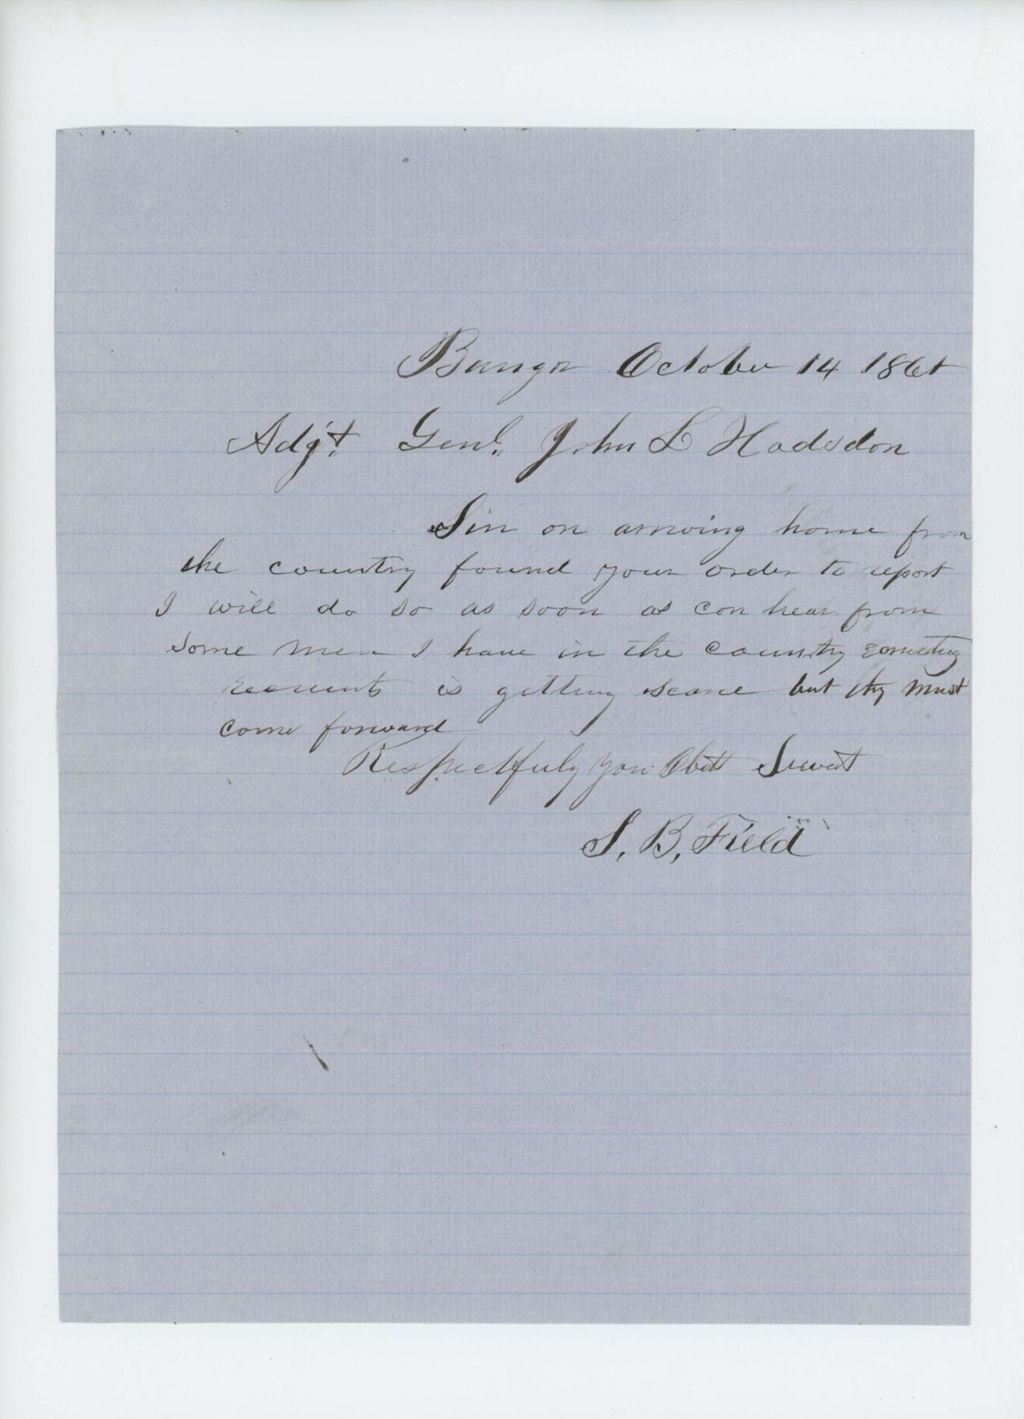 Bangor October 14 1861
Adj't. Genl. John L Hodsdon
Sir on arriving home from
the country found your order to report
I will do so as soon as con hear from
some men I have in the country
recruits is getting scarce but thy must
come forward
Respectfuly your Obdt Servat
S. B. Field